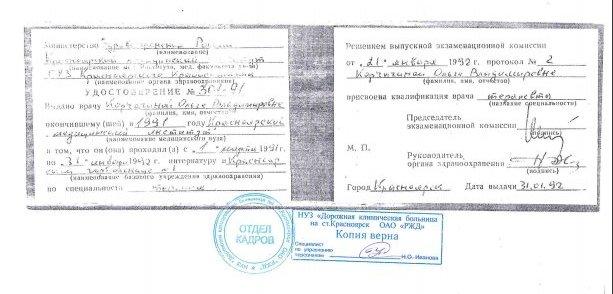 Министерство Здравоохранения России
(наименование)
Красноярский медицинский
(наименование мед. института, мед. факультета ун-та)
(наименование органа здравоохранения)
УДОСТОВЕРЕНИЕ №
Выдано врачу Корчагиной Ольге Владимировне
(фамилия, имя, отчество)
окончившему (шей) в 1991 году Красноярский
медицинский институт
(наименование медицинского вуза)
в том, что он (она) проходил (а) с 1 1991г.
по 31 января 1992 г. интернатуру в
(наименование базового учреждения здравоохранения)
по специальности
Решением выпускной экзаменационной комиссии
от „21" января 1992 г. протокол № 2
Корчагиной Ольге Владимировне
(фамилия, имя, отчество)
присвоена квалификация врача терапевта
(название специальности)
Председатель
экзаменационной комиссии
(подпись)
М. П.
Руководитель
органа здравоохранения
(подпись)
Город Красноярск Дата выдачи 31.01.92
ОТДЕЛ
КАДРОВ
НУЗ «Дорожная клиническая больница
на ст.Красноярск ОАО «РЖД»
Копия верна
Специалист
по управлению
персоналом Н.О. Иванова